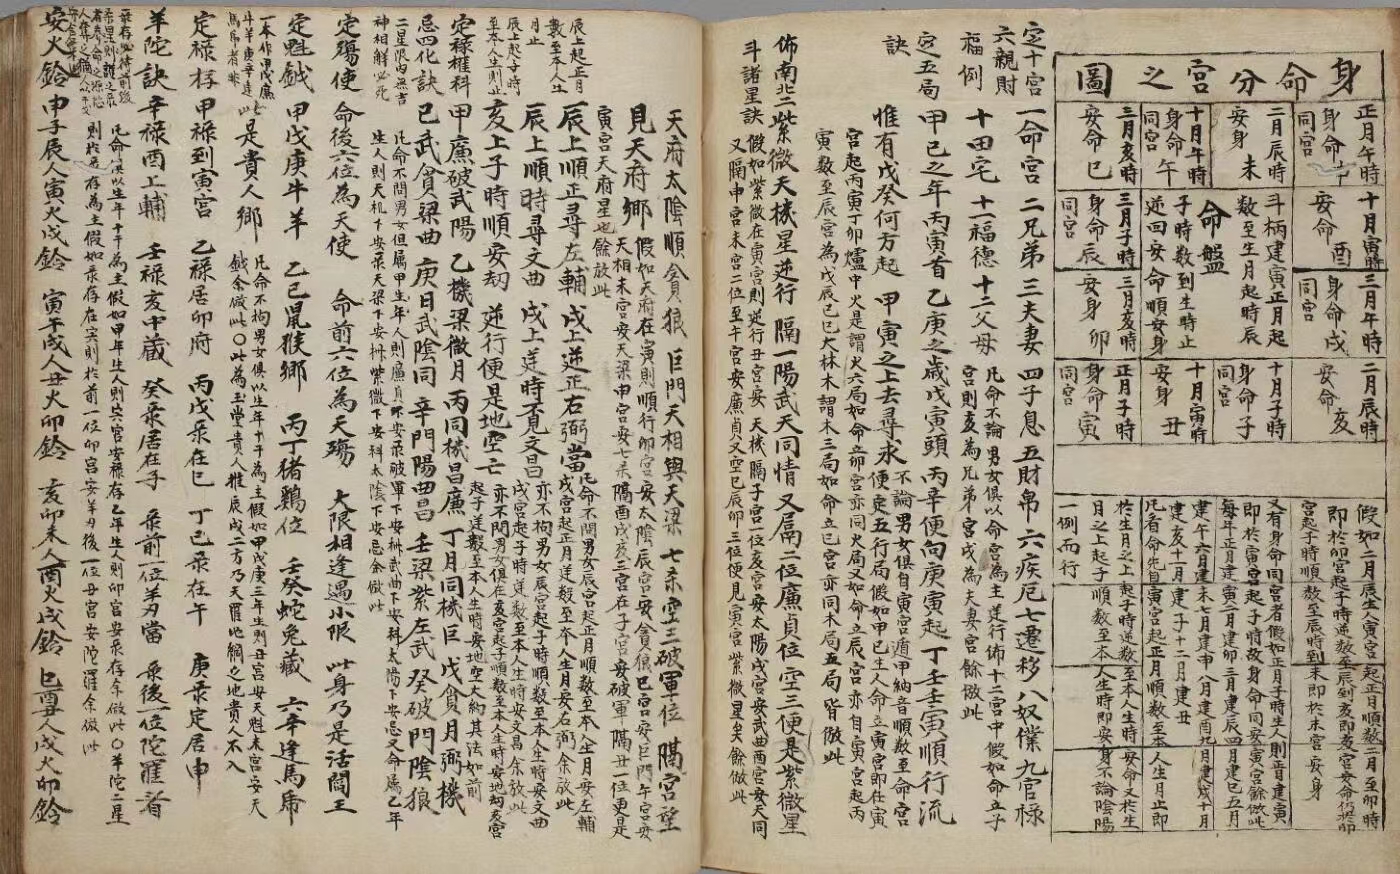 身命分宮之圖
正月午時
身命午
同宮
二月辰時
安身未
十月午時
身命午
同宮
三月亥時
安命巳
十月寅時
安命酉
斗柄建寅正月起
數至生月起時辰
命盤
子時數到生時止
逆回安命順安身
三月子時
身命辰
同宮
三月午時
身命戌
同宮
三月亥時
安身卯
二月辰時
安命亥
十月子時
身命子
同宮
十月寅時
安身丑
正月子時
身命寅
同宮
假如二月辰生人寅宮起正月順數二月至卯時
即於卯宮起子時逆數至辰到亥即亥宮安命仍於卯
宮起子時順數至辰時到未即於未宮安身
又有身命同宮者假如正月子時生人則正月建寅
即於寅宮起子時故身命同安寅宮餘倣此
每年正月建寅二月建卯三月建辰四月建巳五月
建午六月建未七月建申八月建酉九月建戌十月
建亥十一月建子十二月建丑
凡看命先自寅宮起正月順數至本人生月止即
於生月之上起子時逆數至本人生時安命又於生
月之上起子順數至本人生時即安身不論陰陽
一例而行
定十宮六親財福例
一命宮 二兄弟 三夫妻 四子息 五財帛 六疾厄 七遷移 八奴僕 九官祿
十田宅 十一福德 十二父母 凡命不論男女俱以命宮為主逆行佈十二宮中假如命立子宮則亥為兄弟宮戌為夫妻宮餘倣此
定五局訣
甲己之年丙寅首 乙庚之歲戊寅頭 丙辛便向庚寅起 丁壬壬寅順行流
惟有戊癸何方起 甲寅之上去尋求 便定五行局假如甲己生人命立寅宮即在寅
不論男女俱自寅宮遁甲納音順數至命宮
宮起丙寅丁卯爐中火是謂火六局如命立卯宮亦同火局又如命立辰宮亦自寅宮起丙
寅數至辰宮為戊辰己巳大林木謂木三局如命立巳宮亦同木局五局皆倣此
佈南北二斗諸星訣
紫微天機星逆行 隔一陽武天同情 又隔二位廉貞位 空三便是紫微星
假如紫微在寅宮則逆行丑宮安天機隔子宮一位亥宮安太陽戌宮安武曲酉宮安天同
又隔申宮未宮二位至午宮安廉貞又空巳辰卯三位便見寅宮紫微星矣餘倣此
天府太陰順貪狼 巨門天相與天梁 七杀空三破軍位 隔宮望
見天府鄉 假如天府在寅則順行卯宮安太陰辰宮安貪狼巳宮安巨門午宮安
天相未宮安天梁申宮安七杀隔酉戌亥三宮在子宮安破軍隔丑一位更是
寅宮天府星也餘放此
辰上起正月數至本人生月止
辰上順正尋左輔 戌上逆正右弼當 凡命不問男女辰宮起正月順數至本人生月安左輔
戌宮起正月逆數至本人生月安右弼余放此
辰上起子時至本人生時止
辰上順時尋文曲 戌上逆時覓文昌 亦不拘男女辰宮起子時順數至本人生時安文曲
戌宮起子時逆數至本人生時安文昌余放此
亥上子時順安劫 逆行便是地空亡 亦不問男女俱在亥宮起子順數至本人生時安地劫亥宮
起子逆數至本人生時安地空大約其法如前
定禄權科忌四化訣
甲廉破武陽 乙機梁微月 丙同機昌廉 丁月同機巨 戊貪月弼機
己武貪梁曲 庚日武陰同 辛門陽曲昌 壬梁紫左武 癸破門陰狼
二星限内無吉神相解必死
凡命不問男女但屬甲生年人則廉貞下安录破軍下安权武曲下安科太陽下安忌又命屬乙年
生人則天机下安录天梁下安权紫微下安科太陰下安忌余倣此
定殤使 命後六位為天使 命前六位為天殤 大限相逢遇小限 此身乃是活閻王
定魁鉞 甲戊庚牛羊 乙己鼠猴鄉 丙丁猪鷄位 壬癸蛇兔藏 六辛逢馬帍
一本作甲戊廉
斗羊庚辛逢
馬帍者非
此是貴人鄉 凡命不枸男女俱以生年十干為主假如甲戊庚三年生則丑宮安天魁未宮安天
鉞余倣此〇此為玉堂貴人惟辰戌二方乃天羅地網之地貴人不入
定禄存 甲禄到寅宮 乙禄居卯府 丙戊录在巳 丁己录在午 庚录定居申
羊陀訣 辛禄酉上輔 壬禄亥中藏 癸录居在子 录前一位羊刃當 录後一位陀羅看
凡命俱以生年十干為主假如甲年生人則寅宮安禄存乙年生人則卯宮安录存余倣此〇羊陀二星
則於录存為主假如录存在寅則於前一位卯宮安羊刃後一位丑宮安陀羅余倣此
安火鈴 申子辰人寅火戌鈴 寅午戌人丑火卯鈴 亥卯未人酉火戌鈴 巳丑人戌火卯鈴